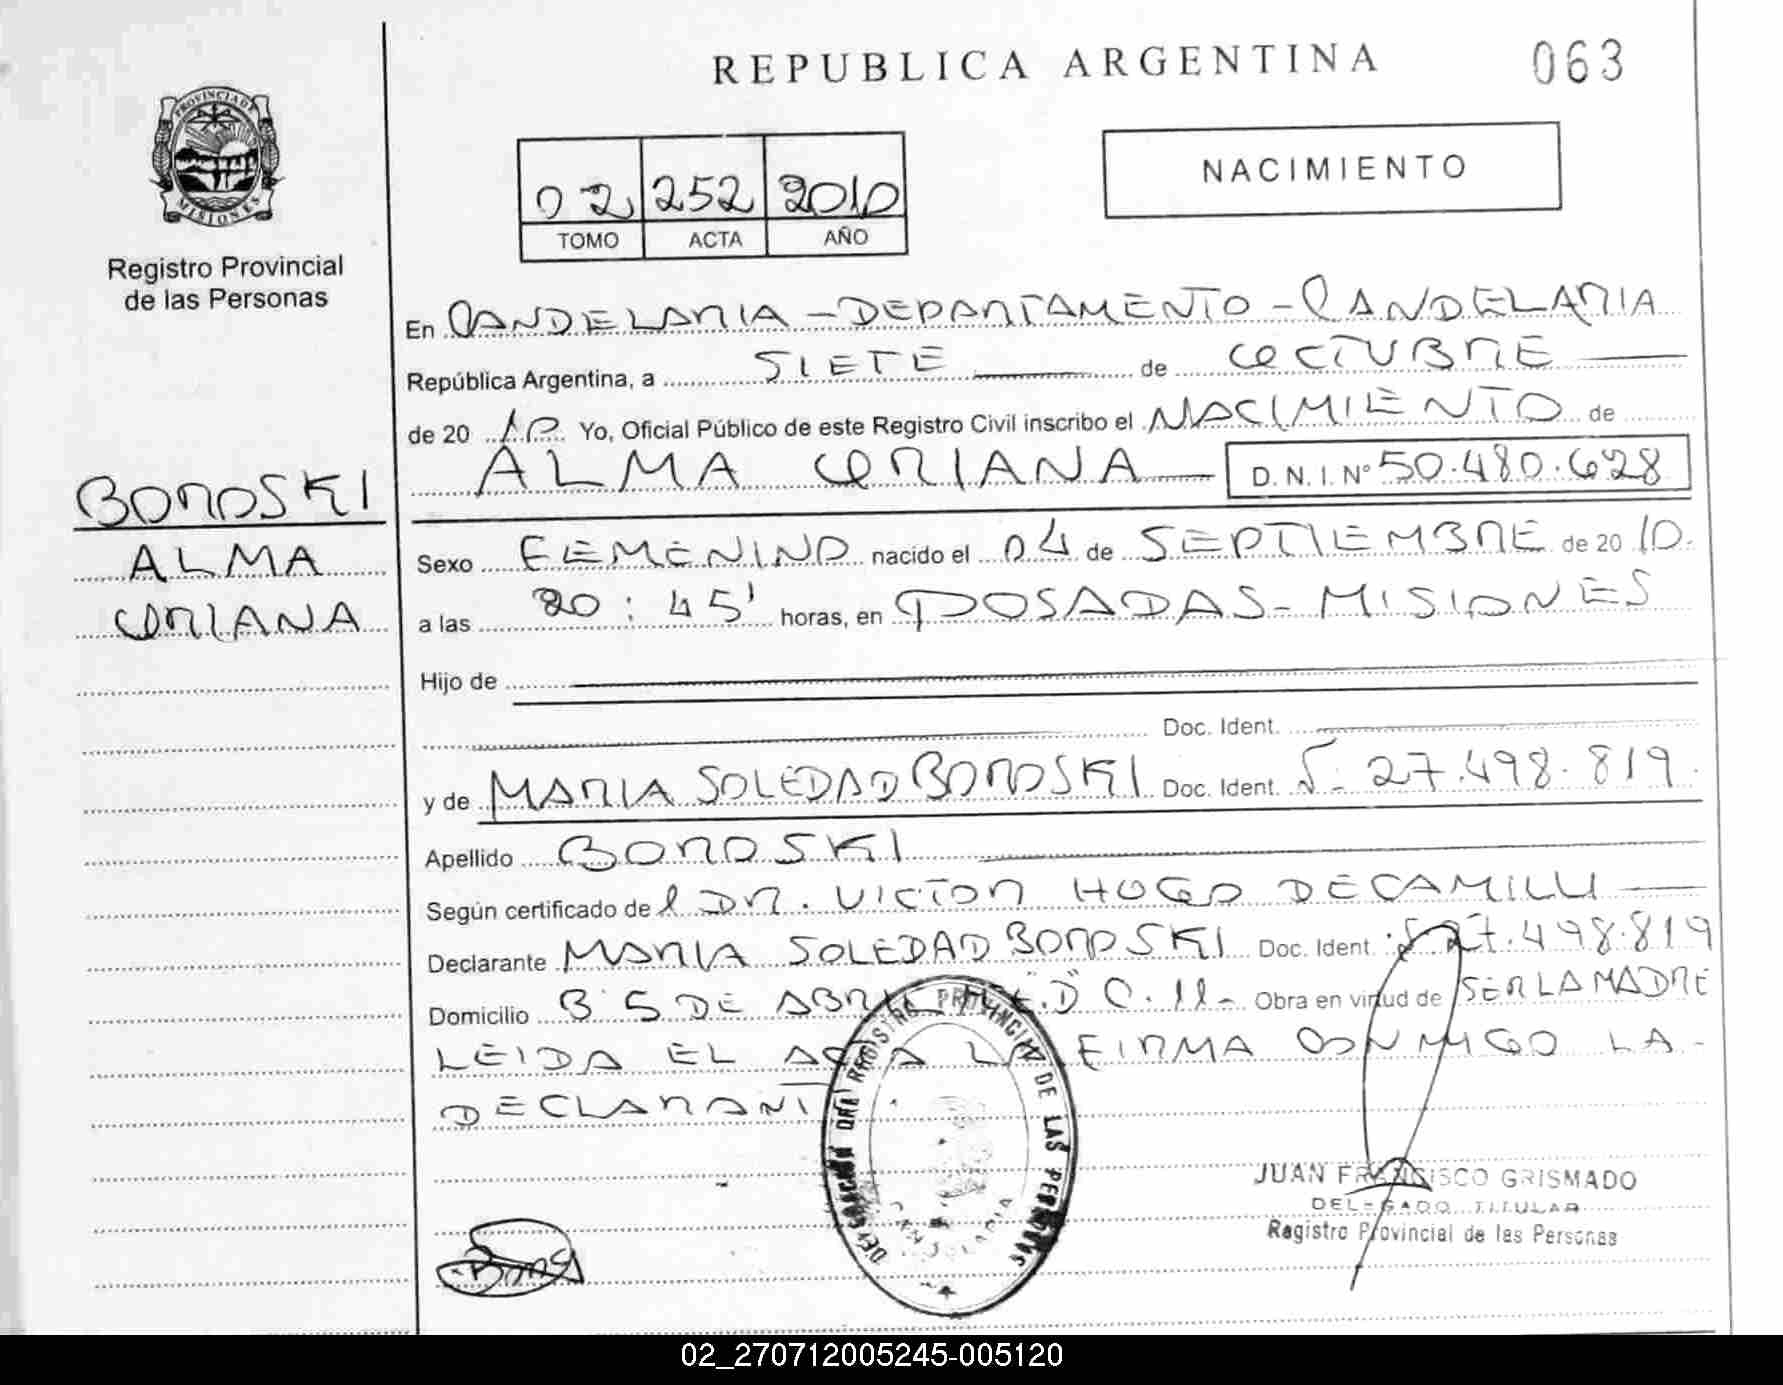 REPUBLICA ARGENTINA
063
PROVINCIA DE
MISIONES
Registro Provincial
de las Personas
02 252 2010
TOMO ACTA AÑO
NACIMIENTO
En CANDELARIA - DEPARTAMENTO - CANDELARIA
República Argentina, a SIETE de OCTUBRE
de 20 10 Yo, Oficial Público de este Registro Civil inscribo el NACIMIENTO de
ALMA ORIANA D.N.I. Nº 50.480.628
BOROSKI
ALMA
ORIANA
Sexo FEMENINO nacido el 04 de SEPTIEMBRE de 20 10.
a las 20:45' horas, en POSADAS - MISIONES
Hijo de
Doc. Ident.
y de MARIA SOLEDAD BOROSKI Doc. Ident. 27.498.819.
Apellido BOROSKI
Según certificado del DR. VICTOR HUGO DECAMILLI
Declarante MARIA SOLEDAD BOROSKI Doc. Ident. 27.498.819
Domicilio Bº 5 DE ABRIL "D" C. 11- Obra en virtud de SER LA MADRE
LEIDA EL ACTA LA FIRMA CONMIGO LA -
DECLARANT
REGISTRO PROVINCIAL DE LAS PERSONAS
DELEGACIÓN
CANDELARIA
JUAN FRANCISCO GRISMADO
DELEGADO TITULAR
Registro Provincial de las Personas
02_270712005245-005120